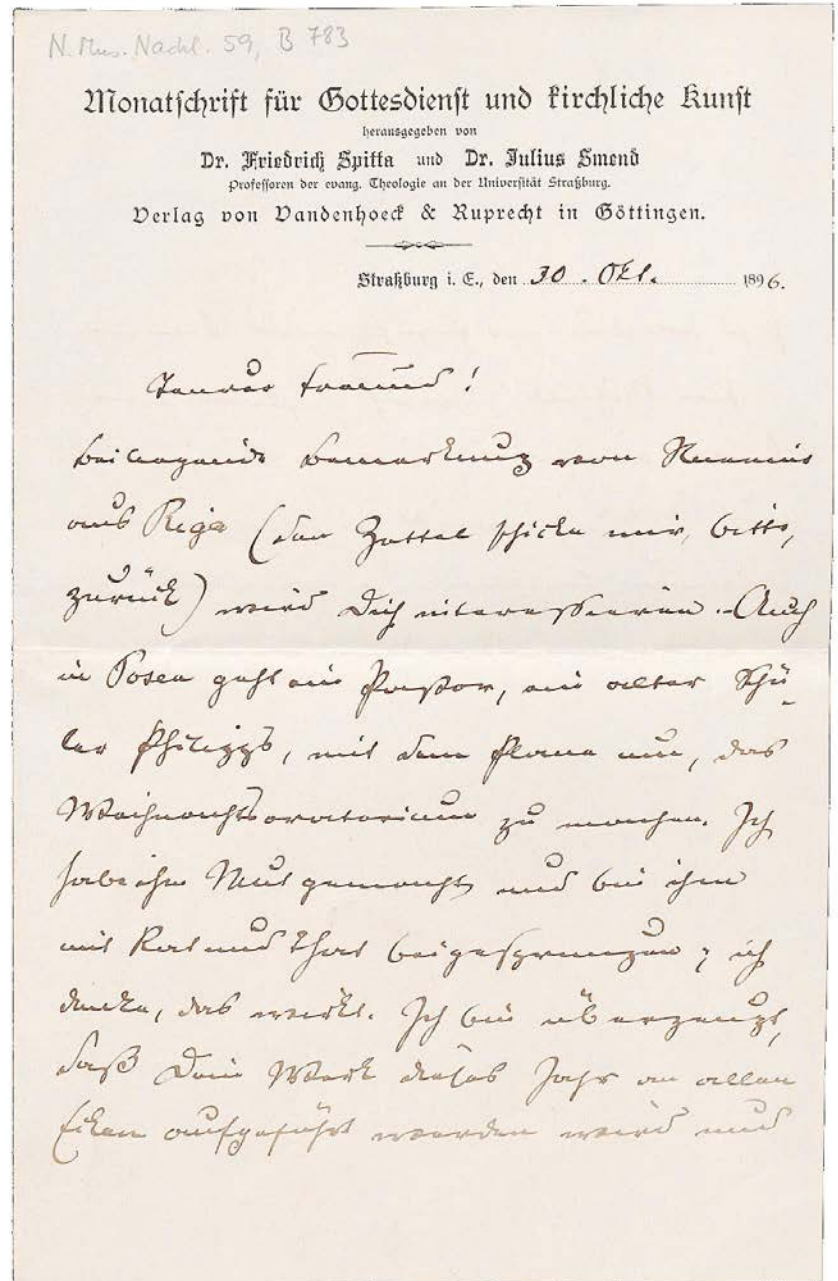 N. Mus. Nachl. 59, B 783
Monatschrift für Gottesdienst und kirchliche Kunst
herausgegeben von
Dr. Friedrich Spitta und Dr. Julius Smend
Professoren der evang. Theologie an der Universität Straßburg.
Verlag von Vandenhoeck & Ruprecht in Göttingen.
Straßburg i. E., den 30. Okt. 1896.
Teurer Freund!
beiliegende Bemerkung von
aus Riga (den Zettel schicke mir, bitte,
zurück) wird Dich interessieren. – Auch
in Posen geht ein Pastor, ein alter Schü-
ler Philipps, mit dem Plane um, das
Weihnachtsoratorium zu machen. Ich
habe ihm Mut gemacht und bin ihm
mit Rat und That beigesprungen; ich
denke, das wirkt. Ich bin überzeugt,
daß Dein Werk dieses Jahr an allen
Ecken aufgeführt werden wird und